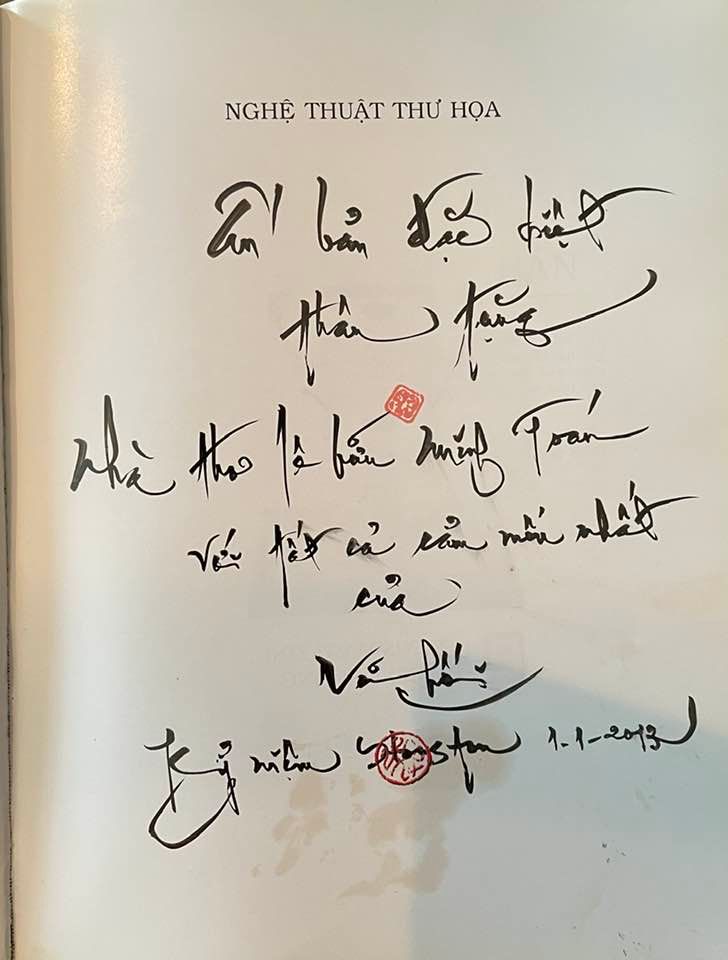 NGHỆ THUẬT THƯ HỌA
Ấn bản đặc biệt
thân tặng
nhà thơ lê hữu minh Toán
với tất cả cảm mến nhất
của
Vũ hối
Kỷ niệm Houston 1-1-2013